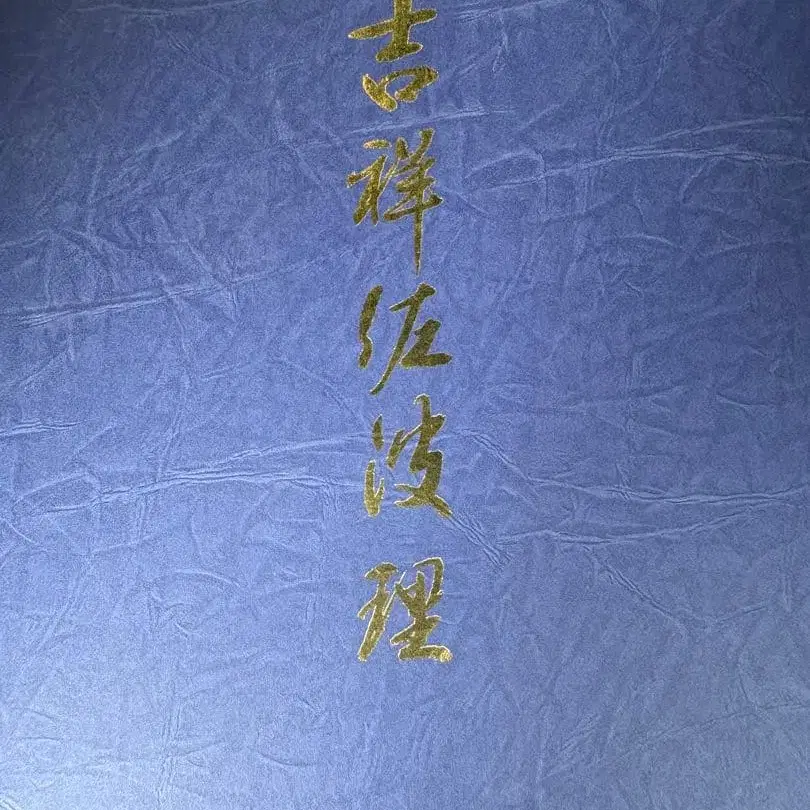 吉祥佐波理